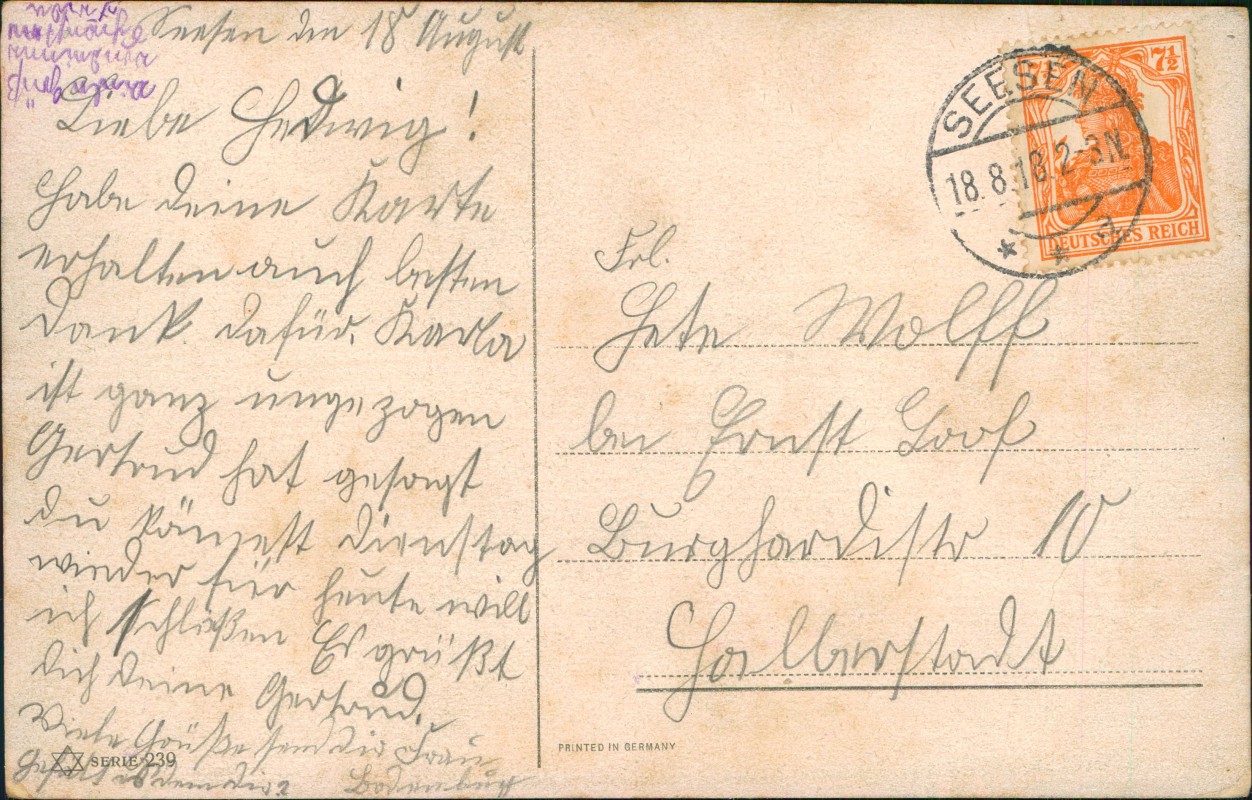 Seesen den 18 August
Liebe Hedwig!
Habe deine Karte
erhalten auch besten
Dank dafür. Karla
ist ganz ungezogen
Gertrud hat gesagt
du kämest Dienstag
wieder für heute will
ich schließen Es grüßt
dich deine Gertrud.
Viele Grüße sendir Frau
Gefällt es denn dir? Bodenburg
SERIE 239
SEESEN
18.8.18.2-3N.
7½
DEUTSCHES REICH
Frl.
Hete Wolff
bei Ernst Loof
Burghardistr 10
Halberstadt
PRINTED IN GERMANY